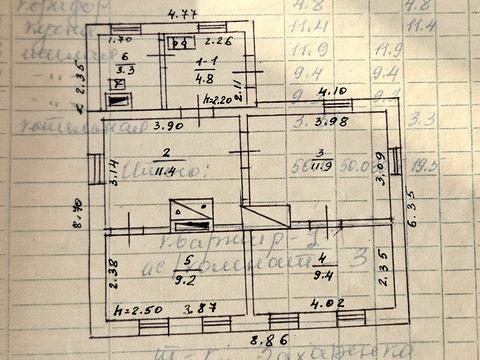 коридор 4.8 4.8
кухня 11.4 11.4
жилая 11.9 11.9
" " 9.4 9.4
" " 9.2 9.2
котельная 3.3 3.3
4.77
1.70
2.26
6
3.3
1-1
4.8
2.35
2.11
h=2.20
4.10
3.90
3.98
2
11.4
3
11.9
3.14
3.09
19.5
8.70
6.35
Квартир-
из комнат 3
5
9.2
4
9.4
2.38
2.35
h=2.50
3.87
4.02
8.86
Захаренко